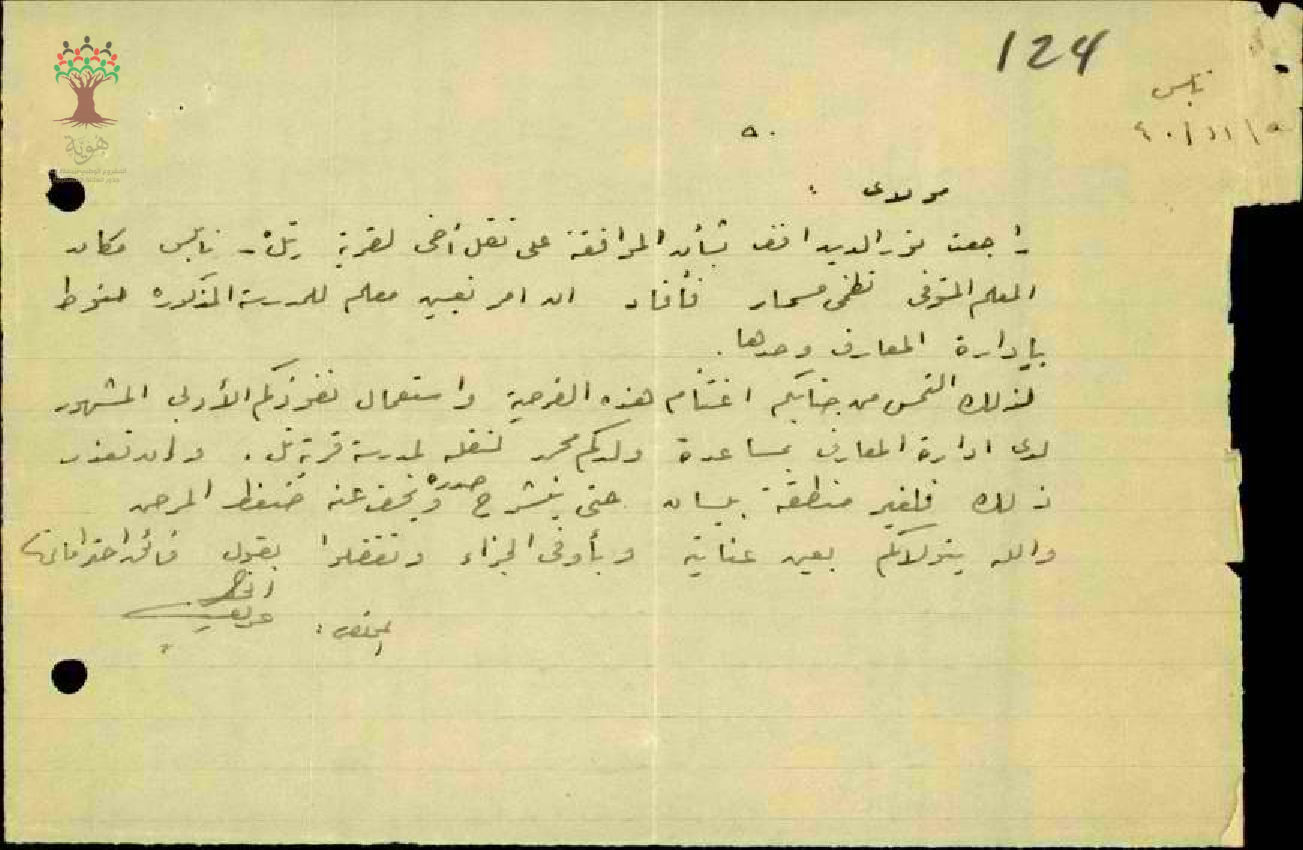 124
نابلس
٥ / ١١ / ٤٠
مولاي :
راجعت عزالدين افندي بشأن الموافقة على نقل أخي لقرية تل - نابلس مكان
المعلم المتوفى نظمي مسمار فأفاد ان امر تعيين معلم للمدرسة المذكورة منوط
بإدارة المعارف وحدها .
لذلك التمس من جنابكم اغتنام هذه الفرصة واستعمال نفوذكم الأدبي المشهور
لدى ادارة المعارف بمساعدة ولدكم محمد لنقله لمدرسة قرية تل . وان تعذر
ذلك فلغير منطقة بيسان حتى ينشرح صدره ويخف عنه ضغط المرض
والله يتولاكم بعين عنايته وبأوفى الجزاء وتفضلوا بقبول فائق احتراماتي
المخلص :
هوية